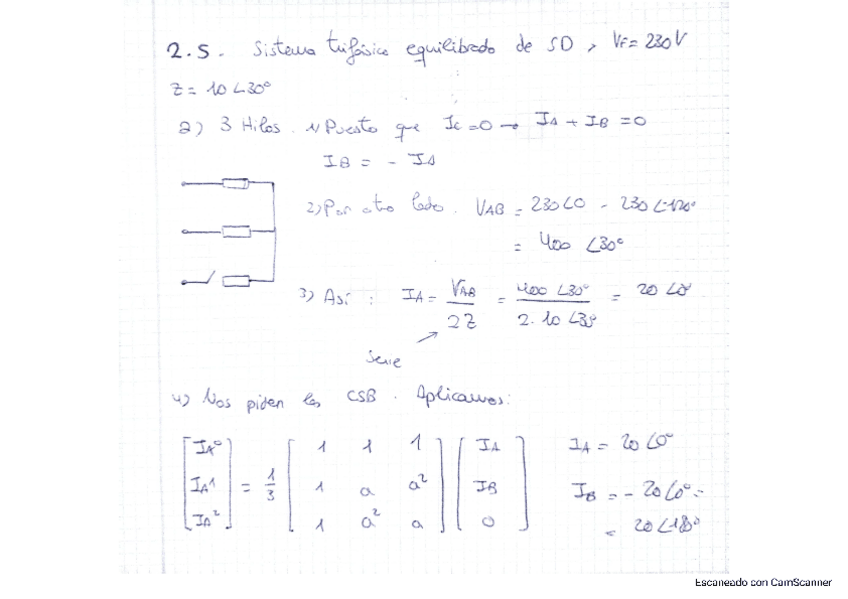 2.5. Sistema trifásico equilibrado de SD, VF = 230V
Z = 10∠30°
a) 3 Hilos. 1) Puesto que Ic = 0 → IA + IB = 0
IB = - IA
2) Por otro lado. VAB = 230∠0 - 230∠-120°
= 400 ∠30°
3) Así: IA = VAB / 2Z = 400∠30° / 2·10∠30° = 20∠0°
Serie
4) Nos piden las CSB. Aplicamos:
[IA⁰] = 1/3 [1 1 1] [IA] IA = 20∠0°
[IA¹] [1 a a²] [IB] IB = - 20∠0° =
[IA²] [1 a² a] [0] = 20∠180°
Escaneado con CamScanner